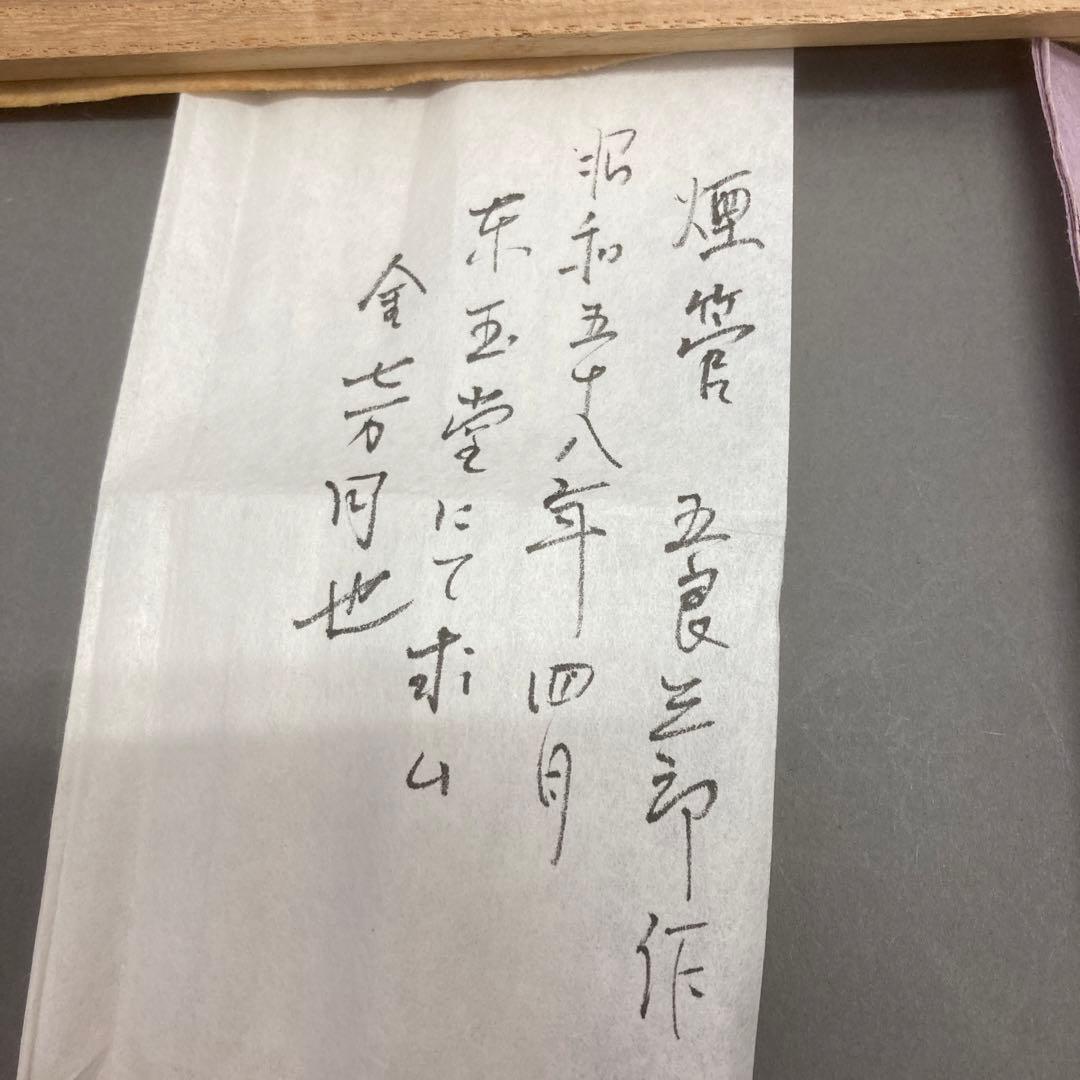 煙管 五良三郎作
昭和五十八年四月
东玉堂にて求ム
金七万円也